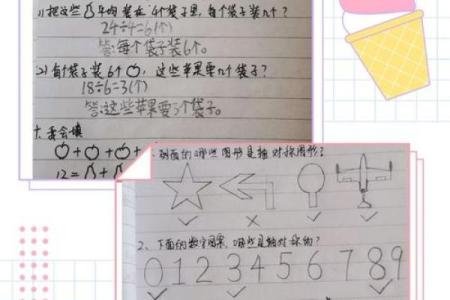 1)把这些 平均装在4个袋子里,每个袋子装几个?
24÷4=6(个)
答:每个袋子装6个。
2)每个袋子装6个 ,这些苹果要几个袋子?
18÷6=3(个)
答:这些苹果要3个袋子。
十、我会填
+ + +
12= +
1、下面的哪些图形是轴对称图形?
✓ × ✓ ✓
2、下面的数字图案,哪些是轴对称的?
0 1 2 3 4 5 6 7 8 9
✓ ✓ ✓